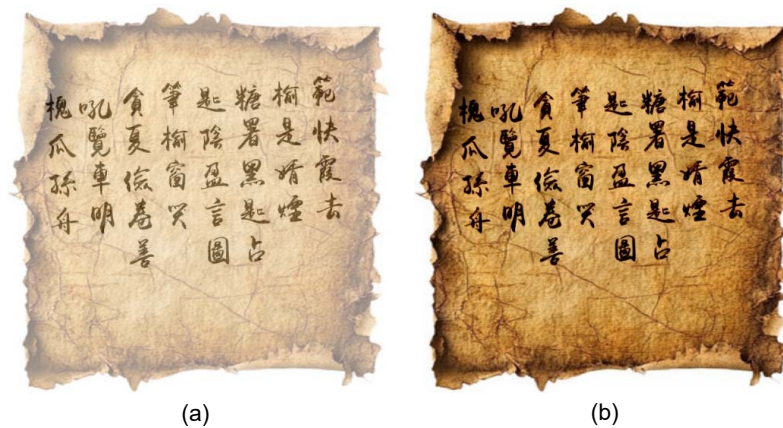 範快霞去
榆是婿煙
糖署黑匙占
匙陰盈言圖
筆榆窗哭
貪夏儉卷善
吼覽車明
槐瓜孫舟
(a)
範快霞去
榆是婿煙
糖署黑匙占
匙陰盈言圖
筆榆窗哭
貪夏儉卷善
吼覽車明
槐瓜孫舟
(b)